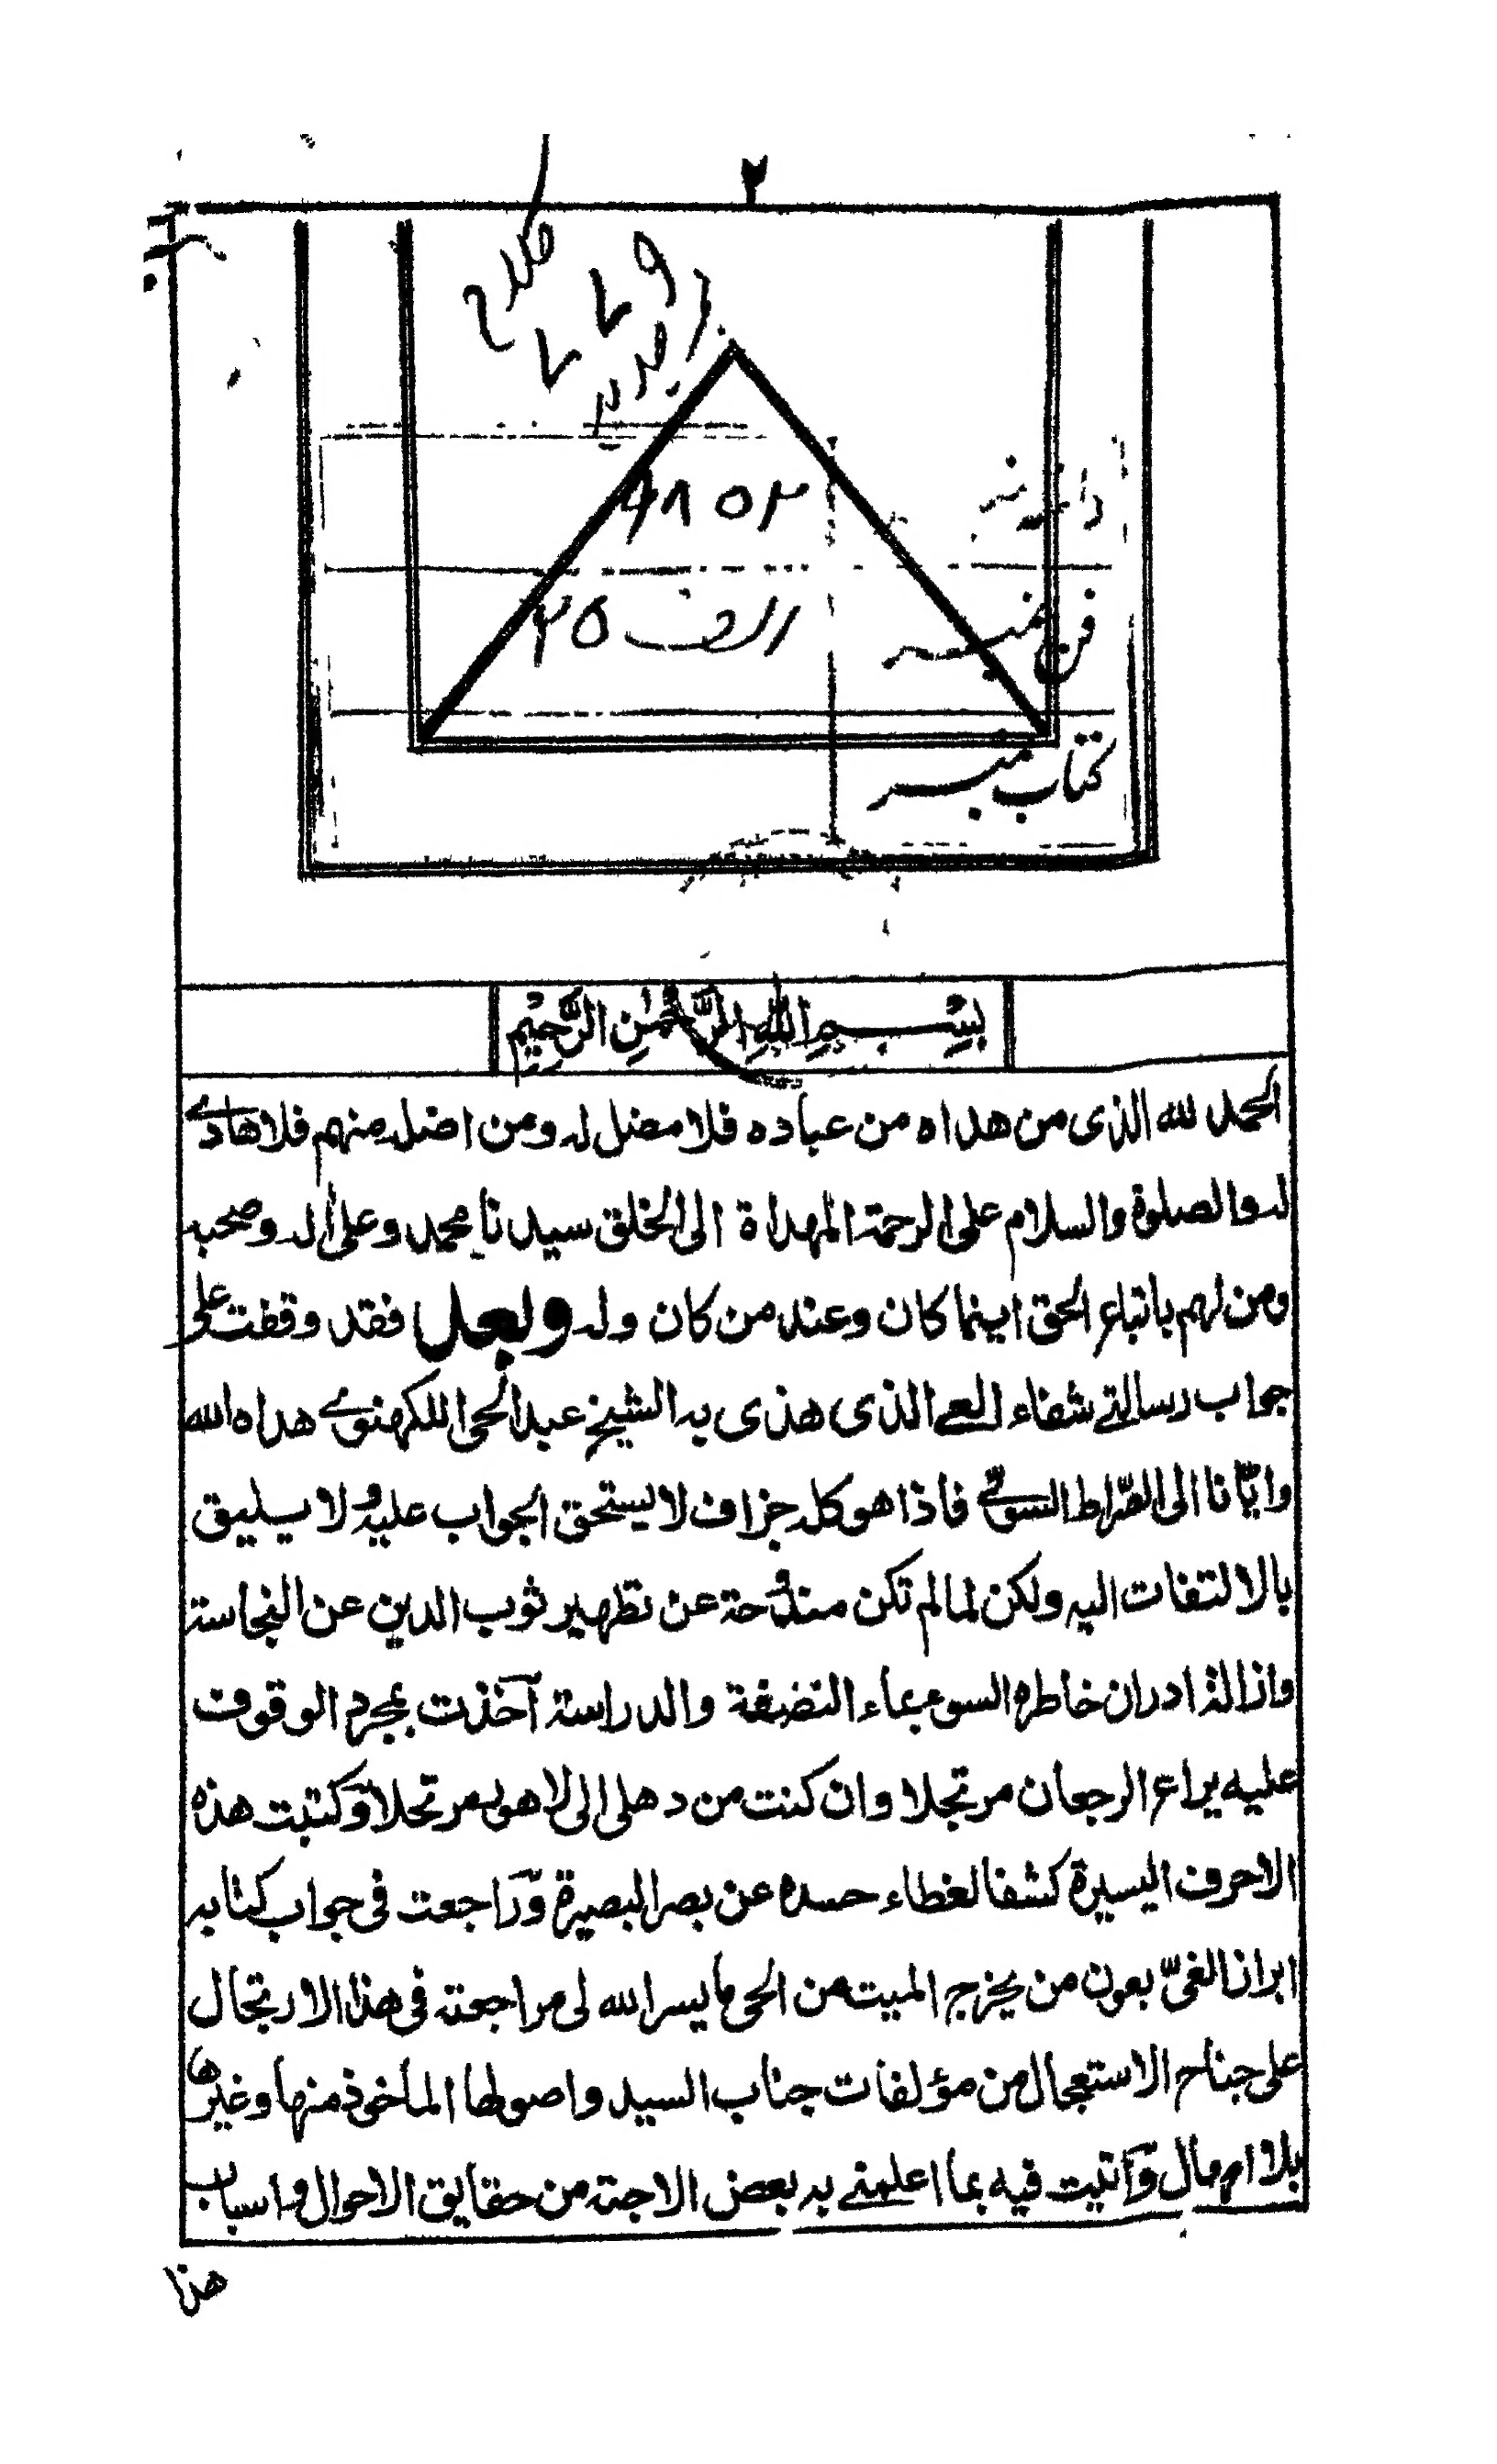 ٢
داخلہ نمبر ٩٨٥٢
فن نمبر الف ٢٥
کتاب نمبر
بسم الله الرحمن الرحيم
الحمد لله الذى من هداه من عباده فلا مضل له ومن اضله منهم فلا هادے
له والصلوة والسلام على الرحمة المهداة الى الخلق سيدنا محمد وعلى اله وصحبه
ومن لهم باتباع الحق اينما كان وعند من كان وله وبعد فقد وقفت على
جواب رسالتے شفاء العے الذى هذى به الشيخ عبد الحى اللكهنوے هداه الله
وايّانا الى الصّراط السوىّ فاذا هو كله جزاف لا يستحق الجواب عليه ولا يليق
بالالتفات اليه ولكن لما لم تكن مندوحة عن تطهير ثوب الدين عن النجاسة
واذالة ادران خاطره السوء بماء النضفة والدراسة آخذت بمجرد الوقوف
عليه يراع الرجعان مرتجلا وان كنت من دهلى الى لاهور مرتحلا وكتبت هذه
الاحرف اليسيرة كشفا لغطاء حسده عن بصر البصيرة وراجعت فى جواب كتابه
ابراز الغىّ بعون من يخرج الميت من الحى ما يسر الله لى مراجعته فى هذا الارتجال
على جناح الاستعجال من مؤلفات جناب السيد واصولها المأخوذ منها وغيرها
بلا امهال وآتيت فيه بما اعلمنے به بعض الاحبة من حقايق الاحوال واسباب
هذا